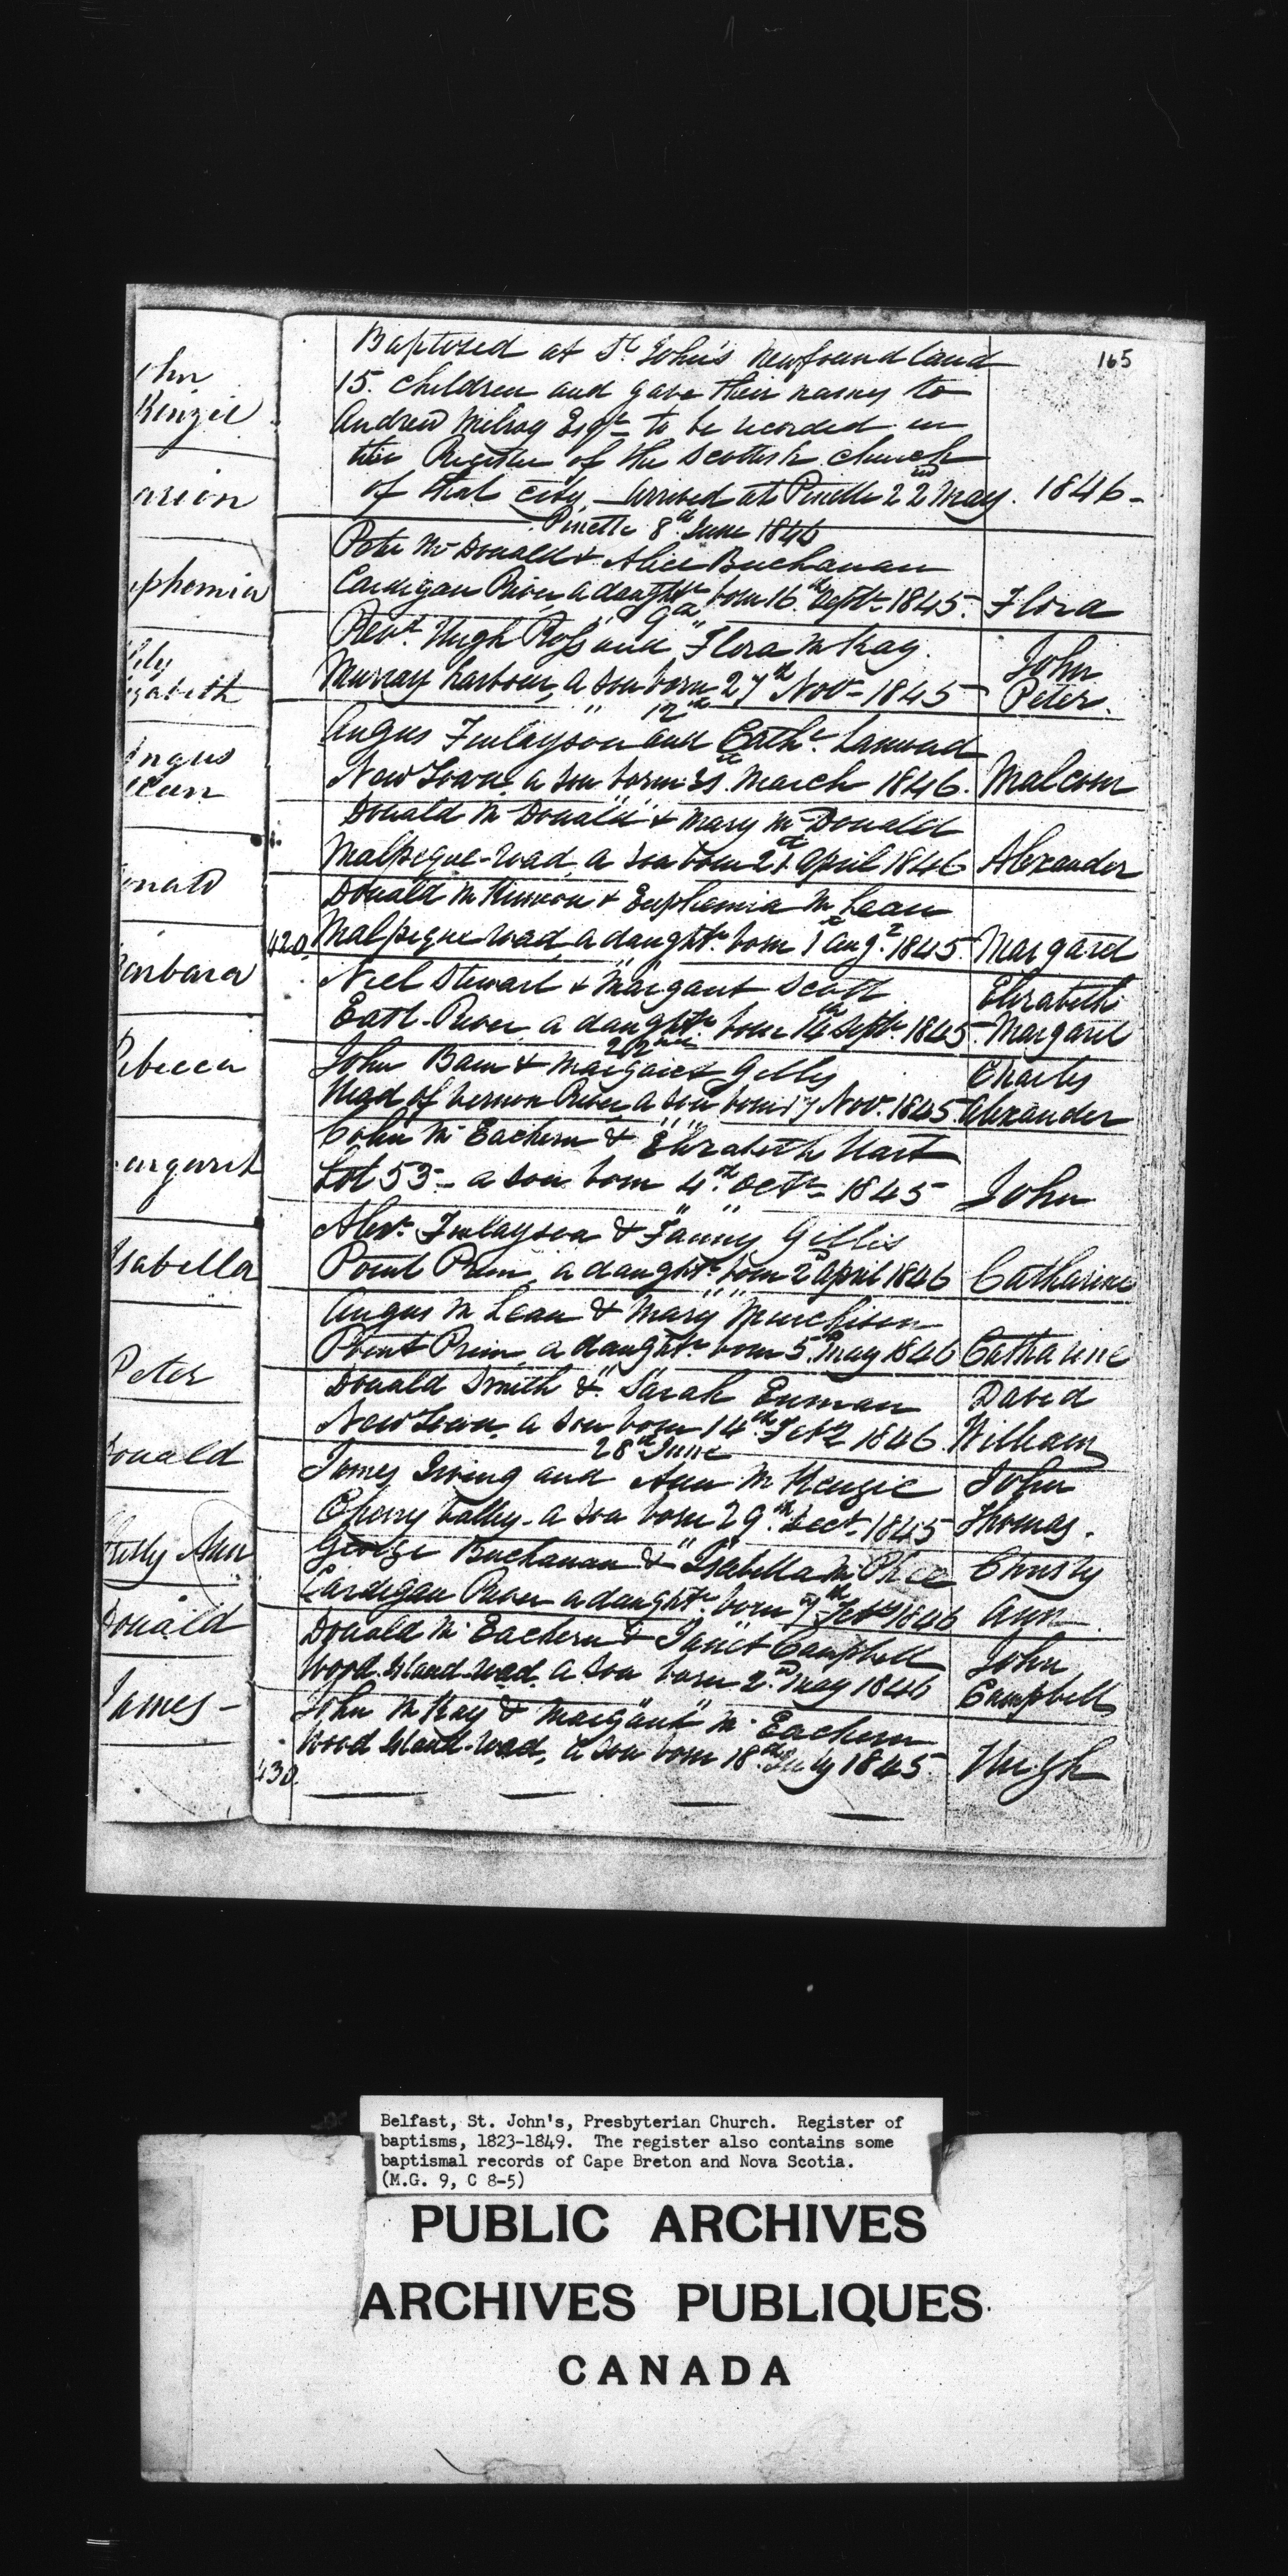 165
Baptised at St John's Newfoundland
15 children and gave their names to
Andrew Milroy Esqr to be recorded in
the Register of the Scottish church
of that city – arrived at Pinette 22nd May. 1846 –
Pinette 8th June 1846
Peter McDonald & Alice Buchanan
Cardigan River, a daughtr born 16th Septr 1845. Flora
" 9th "
Revd. Hugh Ross and Flora McKay. John
Murray harbour, a son born 27th Novr 1845 Peter.
" 12th
Angus Finlayson and Cathe. Lamond
New Town, a son born 31st March 1846. Malcom
" " "
Donald McDonald & Mary McDonald
Malpeque-road, a son born 21st April 1846 Alexander
Donald McKinnon & Euphemia McLean
420 Malpeque road, a daughtr. born 1st augt. 1845. Margaret
" "
Niel Stewart & Margaret Scott Elizabeth
East-River a daughtr born 14th Septr. 1845. Margaret
22nd
John Bain & Margaret Gillis Charles
Head of Vernon River, a son born 17 Novr. 1845 Alexander
" " "
John McEachern & Elizabeth Hart
Lot 53 – a son born 4th Octr 1845 John
" "
Alexr. Finlayson & Fanny Gillis
Point Prim, a daughtr. born 2d April 1846 Catharine
" "
Angus McLean & Mary Murchison
Point Prim, a daughtr. born 5th May 1846 Catharine
"
Donald Smith & Sarah Enman David
New Town, a son born 14th Feby 1846 William
28th June
James Irving and Ann McKenzie John
Cherry Valley – a son born 29th Decr. 1845 Thomas.
" "
George Buchanan & Isabella McPhee Christy
Cardigan River a daughtr. born 7th Feby 1846 Ann
" "
Donald McEachern & Janet Campbell John
Wood Island-road, a son born 2nd May 1846 Campbell
" "
John McKay & Margaret McEachern
Wood Island-road, a son born 18th July 1845. Hugh
430
ohn
Kenzie
arion
uphemia
izabeth
Angus
onald
Barbara
Rebecca
argaret
Isabella
Peter
Donald
Ann
Donald
James –
Belfast, St. John's, Presbyterian Church. Register of
baptisms, 1823-1849. The register also contains some
baptismal records of Cape Breton and Nova Scotia.
(M.G. 9, C 8-5)
PUBLIC ARCHIVES
ARCHIVES PUBLIQUES
CANADA